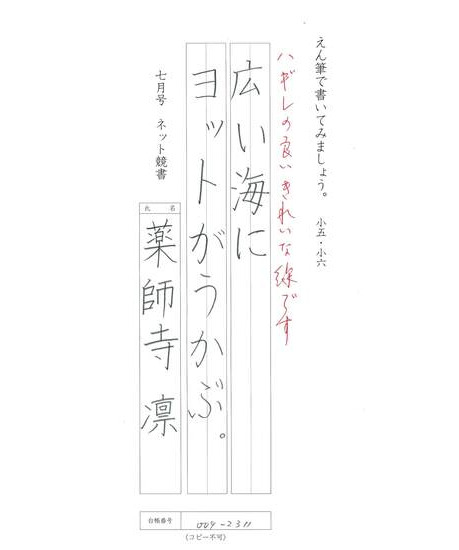 えん筆で書いてみましょう。 小五・小六
ハギレの良いきれいな線です
広い海に
ヨットがうかぶ。
七月号 ネット競書
氏名
薬師寺 凛
台帳番号 009-2311
(コピー不可)